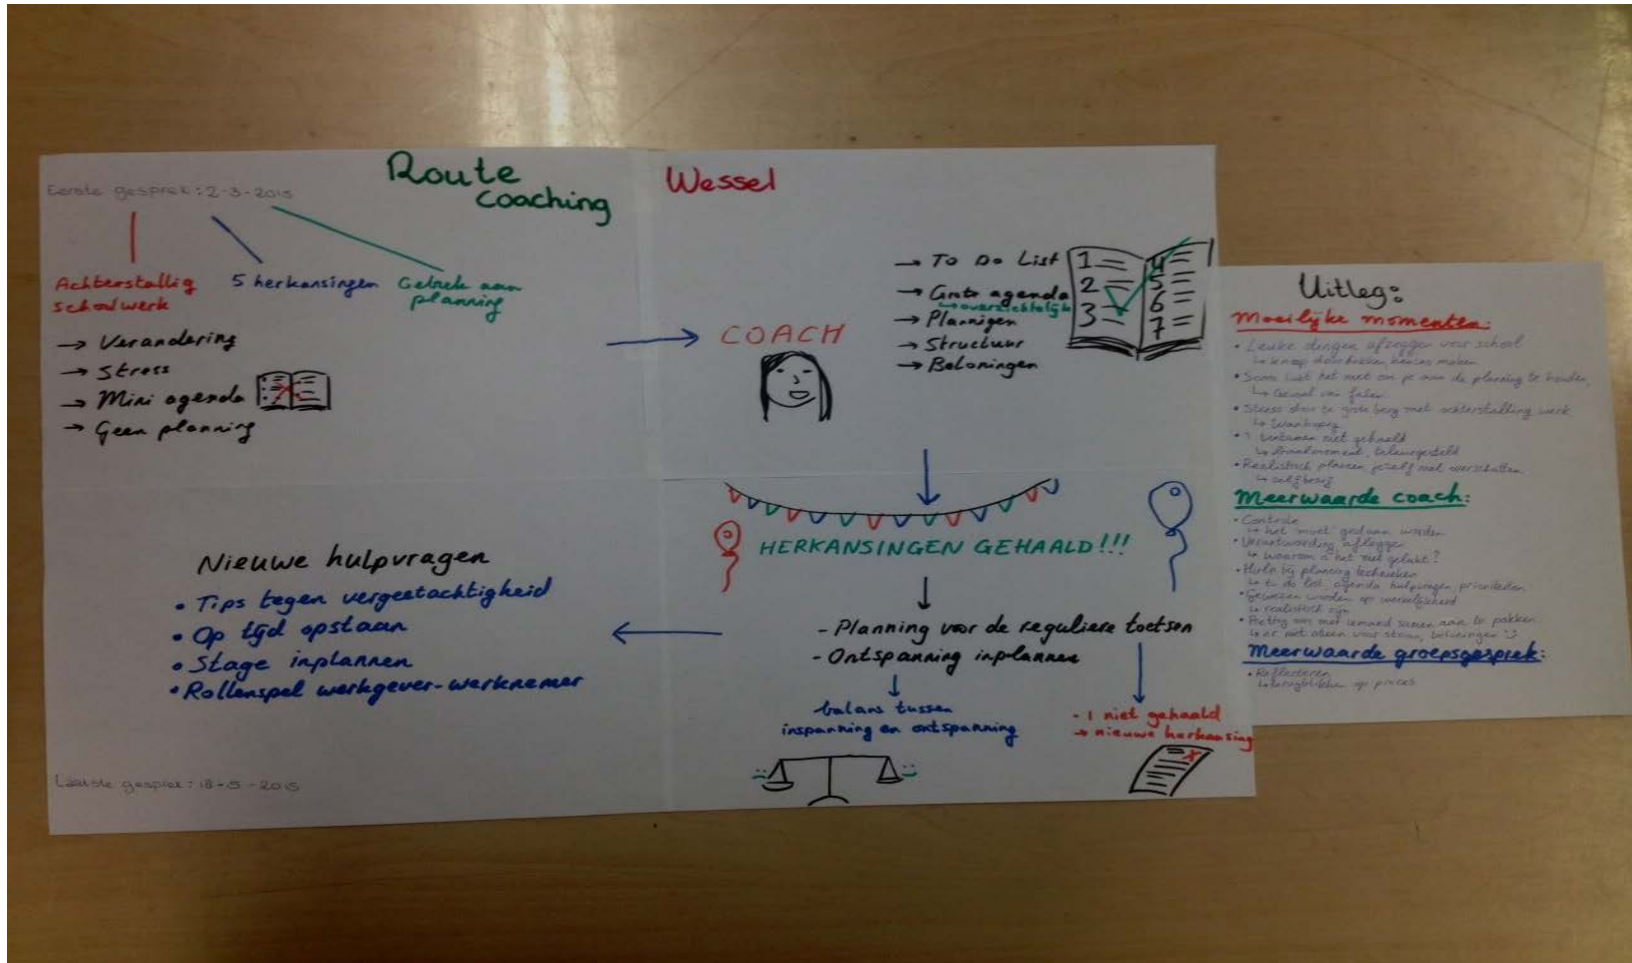 Route
coaching
Wessel
Eerste gesprek: 2-3-2015
Achterstallig
schoolwerk
5 herkansingen
Gebrek aan
planning
→ Verandering
→ Stress
→ Mini agenda
→ Geen planning
COACH
→ To Do List
→ Grote agenda
↳ overzichtelijk
→ Planningen
→ Structuur
→ Beloningen
1
2
3
4
5
6
7
HERKANSINGEN GEHAALD!!!
- Planning voor de reguliere toetsen
- Ontspanning inplannen
balans tussen
inspanning en ontspanning
- 1 niet gehaald
→ nieuwe herkansing
Nieuwe hulpvragen
• Tips tegen vergeetachtigheid
• Op tijd opstaan
• Stage inplannen
• Rollenspel werkgever-werknemer
Laatste gesprek: 18-5-2015
Uitleg:
Moeilijke momenten:
• Leuke dingen afzeggen voor school
↳ knoop doorhakken, keuzes maken
• Soms lukt het niet om je aan de planning te houden,
↳ Gevoel van falen
• Stress door te grote berg met achterstallig werk
↳ Wanhopig
• 1 tentamen niet gehaald
↳ teleurgesteld
• Realistisch plannen jezelf niet overschatten
Meerwaarde coach:
• Controle
↳ het "moet" gedaan worden
• Verantwoording afleggen
↳ waarom is het niet gelukt?
• Hulp bij planning technieken
↳ to do list agenda hulpvragen prioriteiten
• Gewezen worden op werkelijkheid
↳ realistisch zijn
• Prettig om met iemand samen aan te pakken
↳ er niet alleen voor staan, beloningen
Meerwaarde groepsgesprek:
• Reflecteren
↳ terugblikken op proces